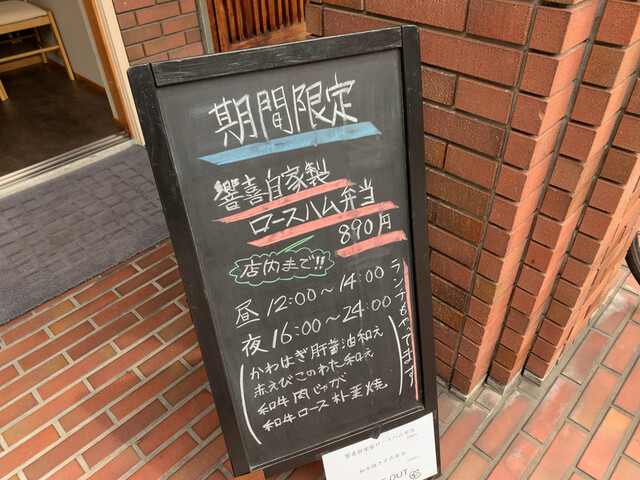 期間限定
響喜自家製
ロースハム弁当
890円
店内まで!!
昼 12:00〜14:00
夜 16:00〜24:00
ランチもやってます
かわはぎ肝醤油和え
赤えびこのわた和え
和牛肉じゃが
和牛ロース朴葉焼
響喜自家製ロースハム弁当
OUT